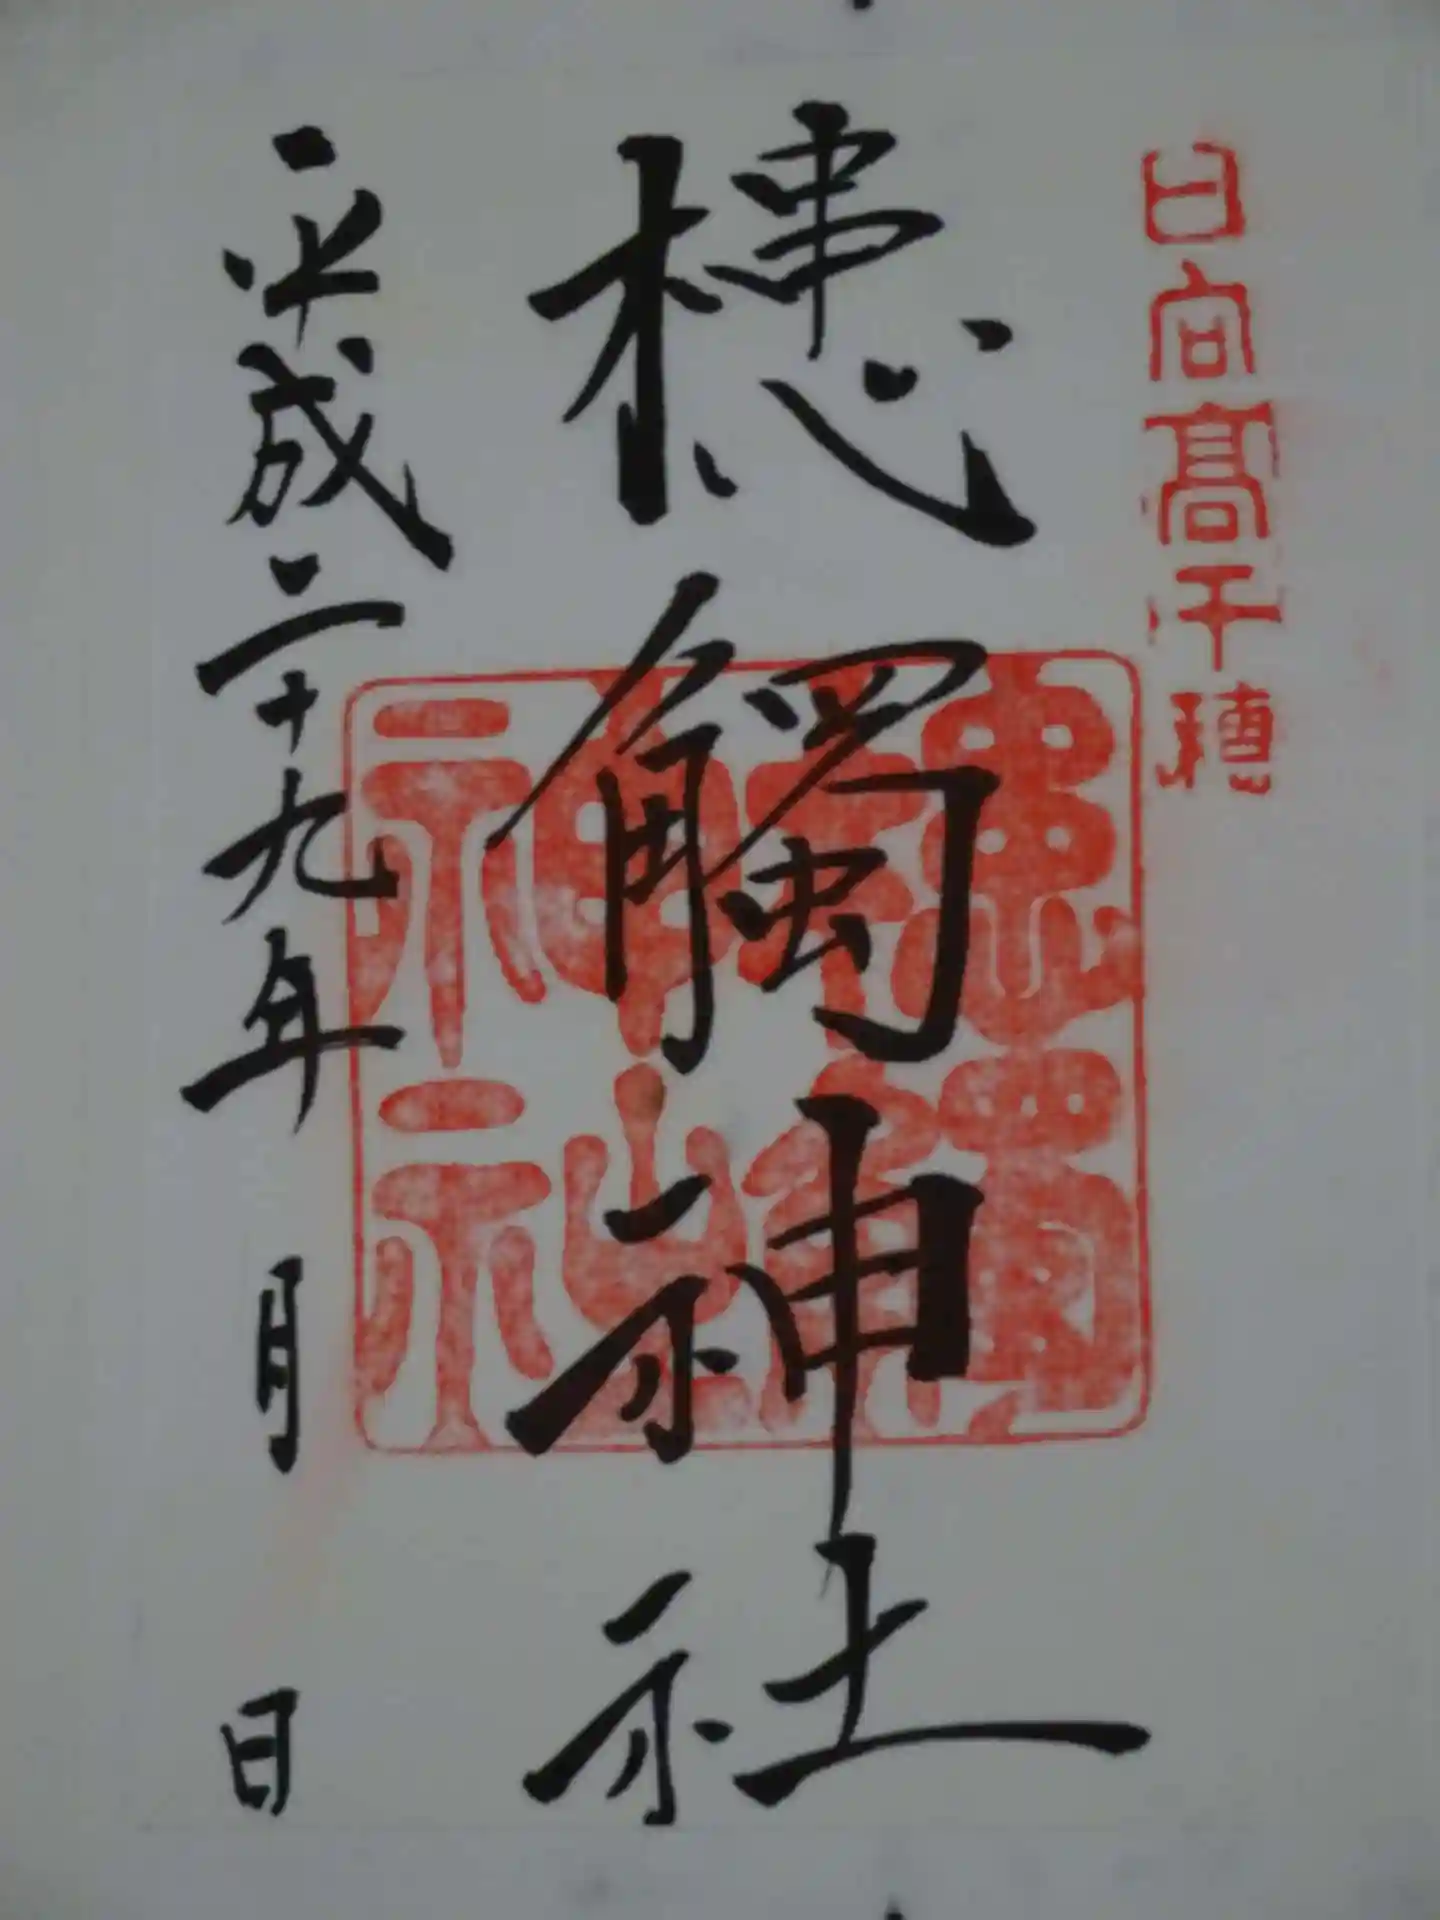 日向高千穂
槵觸神社
平成二十九年 月 日